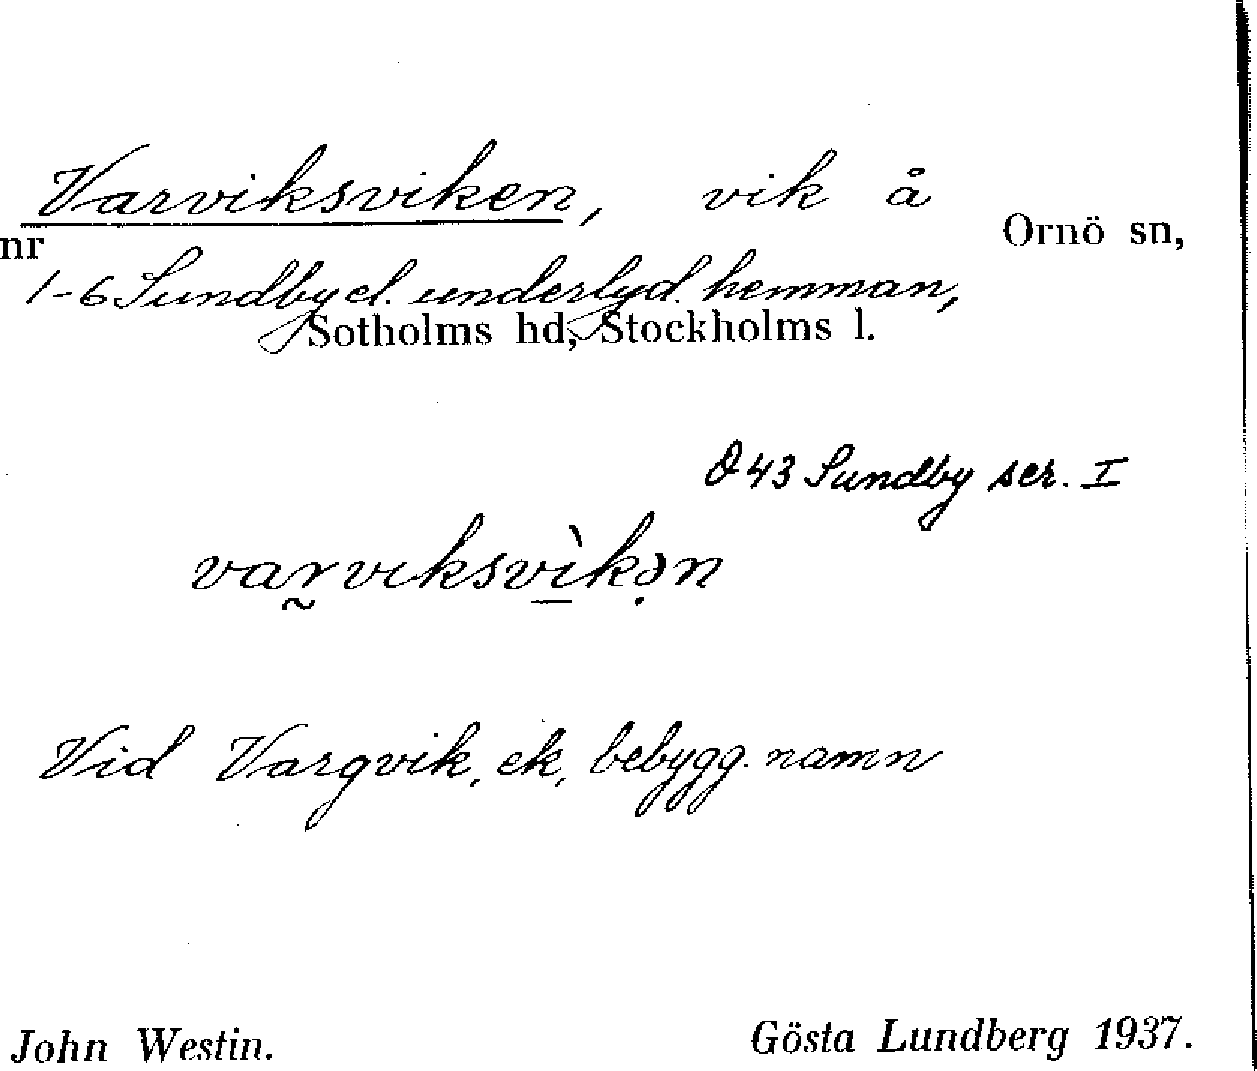 Varviksviken, vik å
Ornö sn,
nr
1-6 Sundby el. underlyd. hemman,
Sotholms hd, Stockholms l.
O43 Sundby ser. I
varviksvìkən
Vid Vargvik, ek, bebygg. namn
John Westin. Gösta Lundberg 1937.